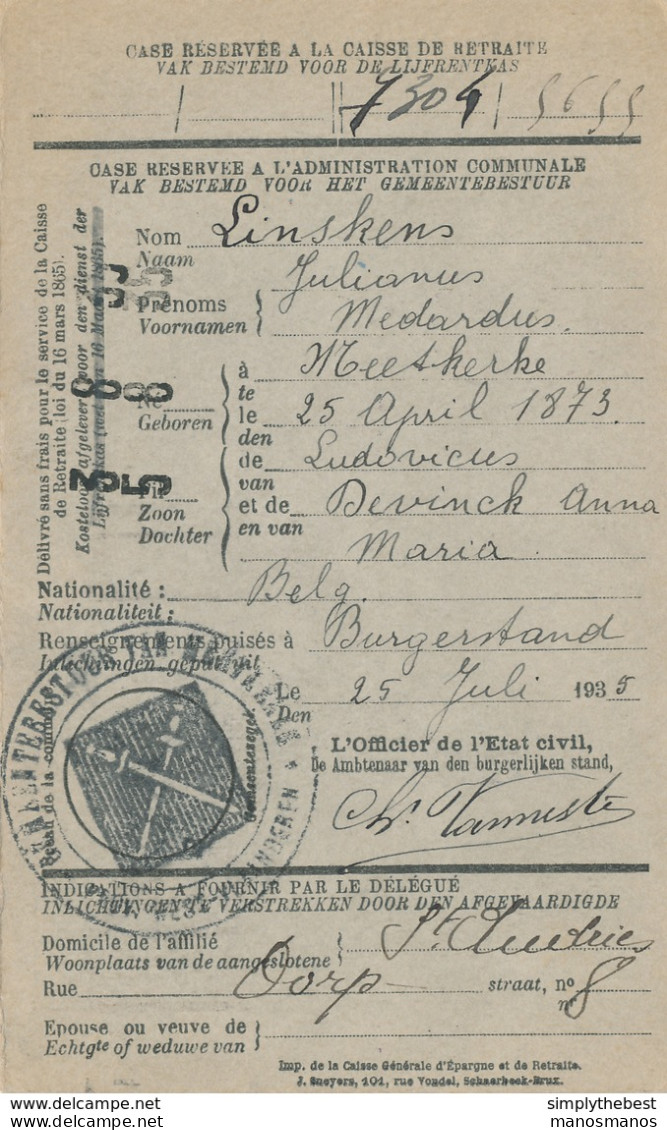 CASE RÉSERVÉE A LA CAISSE DE RETRAITE
VAK BESTEMD VOOR DE LIJFRENTKAS
7304 5655
CASE RESERVÉE A L'ADMINISTRATION COMMUNALE
VAK BESTEMD VOOR HET GEMEENTEBESTUUR
Délivré sans frais pour le service de la Caisse
de Retraite (loi du 16 mars 1865).
Kosteloos afgeleverd voor den dienst der
Lijfrentkas (wet van 16 Maart 1865).
Nom Linskens
Naam
Prénoms Julianus
Voornamen Medardus.
à Meetkerke
te
Né le 25 April 1873.
Geboren den
de Ludovicus
van
Fil et de Devinck Anna
Zoon en van
Dochter Maria.
Nationalité : Belg.
Nationaliteit :
Renseignements puisés à Burgerstand
Inlichtingen geput uit
Le 25 Juli 1935
Den
L'Officier de l'Etat civil,
De Ambtenaar van den burgerlijken stand,
GEMEENTEBESTUUR VAN
Sceau de la commune
Gemeentezegel
INDICATIONS A FOURNIR PAR LE DÉLÉGUÉ
INLICHTINGEN TE VERSTREKKEN DOOR DEN AFGEVAARDIGDE
Domicile de l'affilié St Andries
Woonplaats van de aangeslotene
Rue Dorp straat, no 8
nr
Epouse ou veuve de
Echtgte of weduwe van
Imp. de la Caisse Générale d'Épargne et de Retraite.
J. Sneyers, 101, rue Vondel, Schaerbeek-Brux.
simplythebest
manosmanos